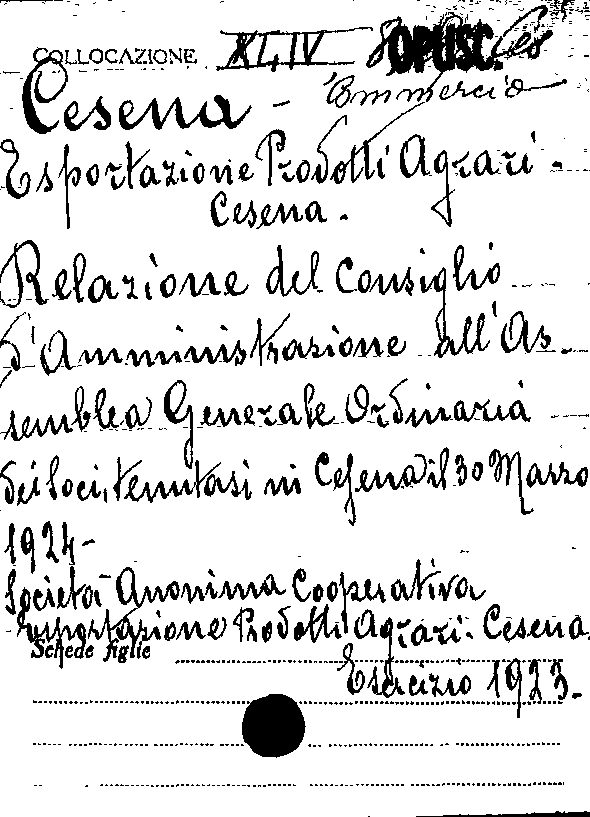 COLLOCAZIONE XLIV OPUSC. Ces
Cesena - Commercio
Esportazione Prodotti Agrari -
Cesena.
Relazione del Consiglio
d'Amministrazione all'As-
semblea Generale Ordinaria
dei Soci, tenutasi in Cesena il 30 Marzo
1924 -
Società Anonima Cooperativa
esportazione Prodotti Agrari. Cesena.
Schede figlie
Esercizio 1923.